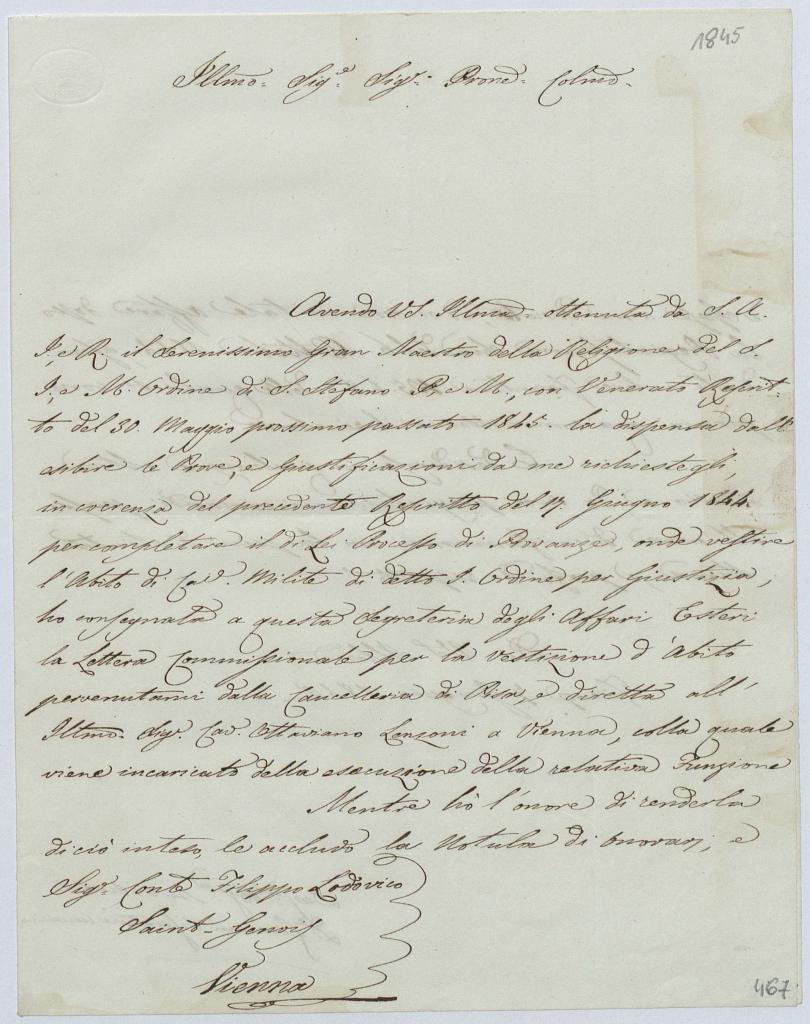 1845
Illmo. Sigre. Sigr. Prone. Colmo.
Avendo VS. Illma. ottenuta da S. A.
I. e R. il Serenissimo Gran Maestro della Religione del S.
I. e M. Ordine di S. Stefano P. e M., con Venerato Rescrit-
to del 30. Maggio prossimo passato 1845. la dispensa dall'
esibire le Prove, e Giustificazioni da me richiestegli,
in coerenza del precedente Rescritto del 17. Giugno 1844.
per completare il di Lei Processo di Provanze, onde vestire
l'Abito di Cav. Milite di detto S. Ordine per Giustizia,
ho consegnata a questa Segreteria degli Affari Esteri
la Lettera Commissionale per la vestizione d'Abito
pervenutami dalla Cancelleria di Pisa, e diretta all'
Illmo. Sigr. Cav. Ottaviano Lenzoni a Vienna, colla quale
viene incaricato della esecuzione della relativa Funzione
Mentre hò l'onore di renderla
di ciò inteso, le accludo la Notula di onorarj, e
Sigr. Conte Filippo Lodovico
Saint-Genois
Vienna
467